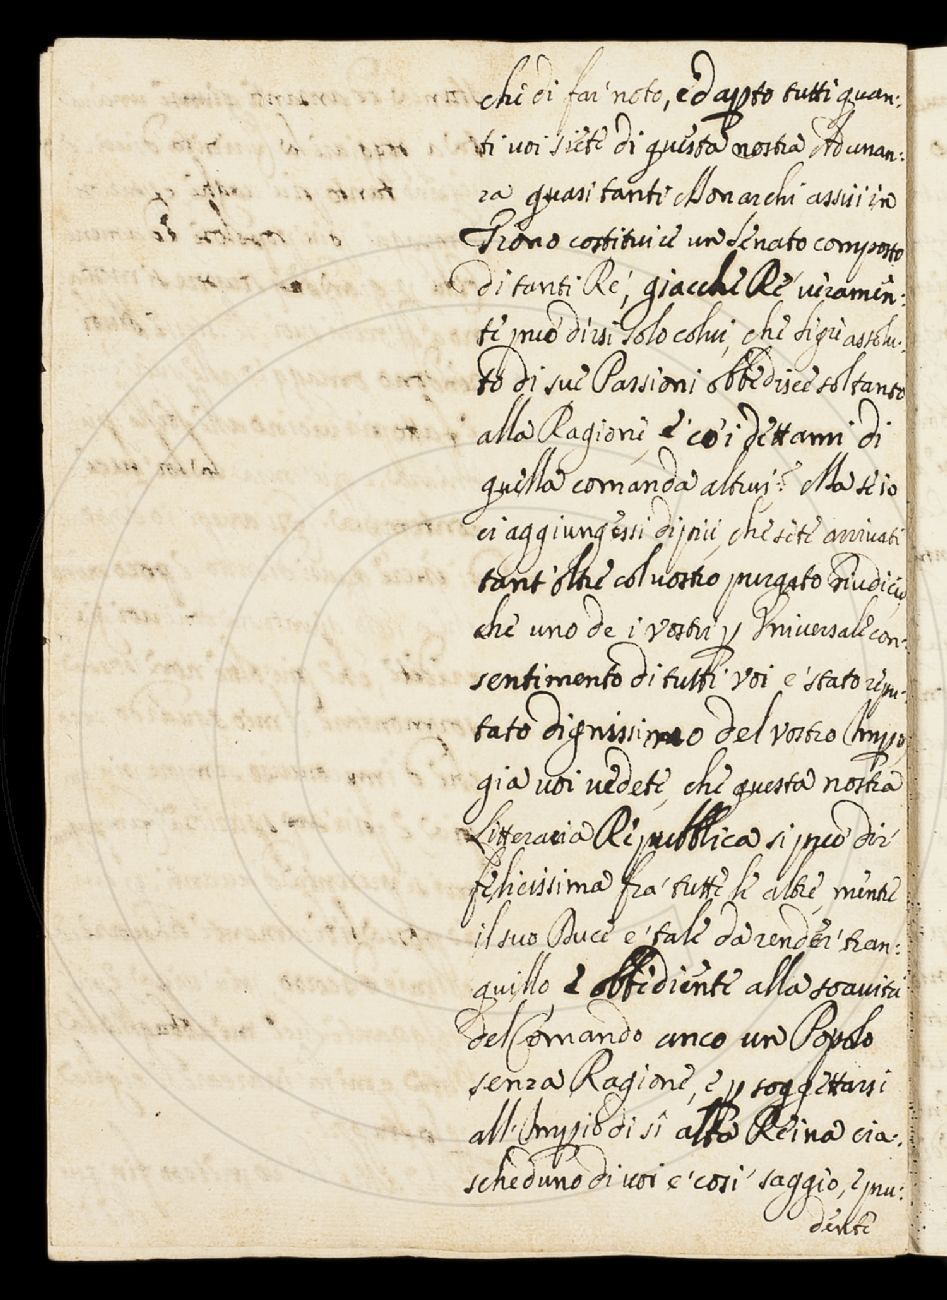 che di far noto, ed apto tutti quan:
ti voi siete di questa nostra Adunan:
za quasi tanti Monarchi assisi in
Trono costituire un Senato composto
di tanti Re', giacche Re' veramen:
te può dirsi solo colui, che Sigre assolu:
to di sue Passioni obbedisce soltanto
alla Ragione, e co' i dettami di
quella comanda altrui? Ma se io
ci aggiungessi di più, che sete arrivati
tant' oltre col vostro purgato Giudicio,
che uno de i vostri p Universale con:
sentimento di tutti voi e' stato repu:
tato dignissimo del vostro Impo,
gia voi vedete, che questa nostra
Litteraria Repubblica si può dir'
felicissima fra' tutte le altre, mente
il suo Duce e' tale da render' tran:
quillo, e obbediente alla soavità
del Comando anco un Popolo
senza Ragione, e p soggettarsi
all' Impio di sì alta Reina cia:
scheduno di voi e' così saggio, e pru:
dente